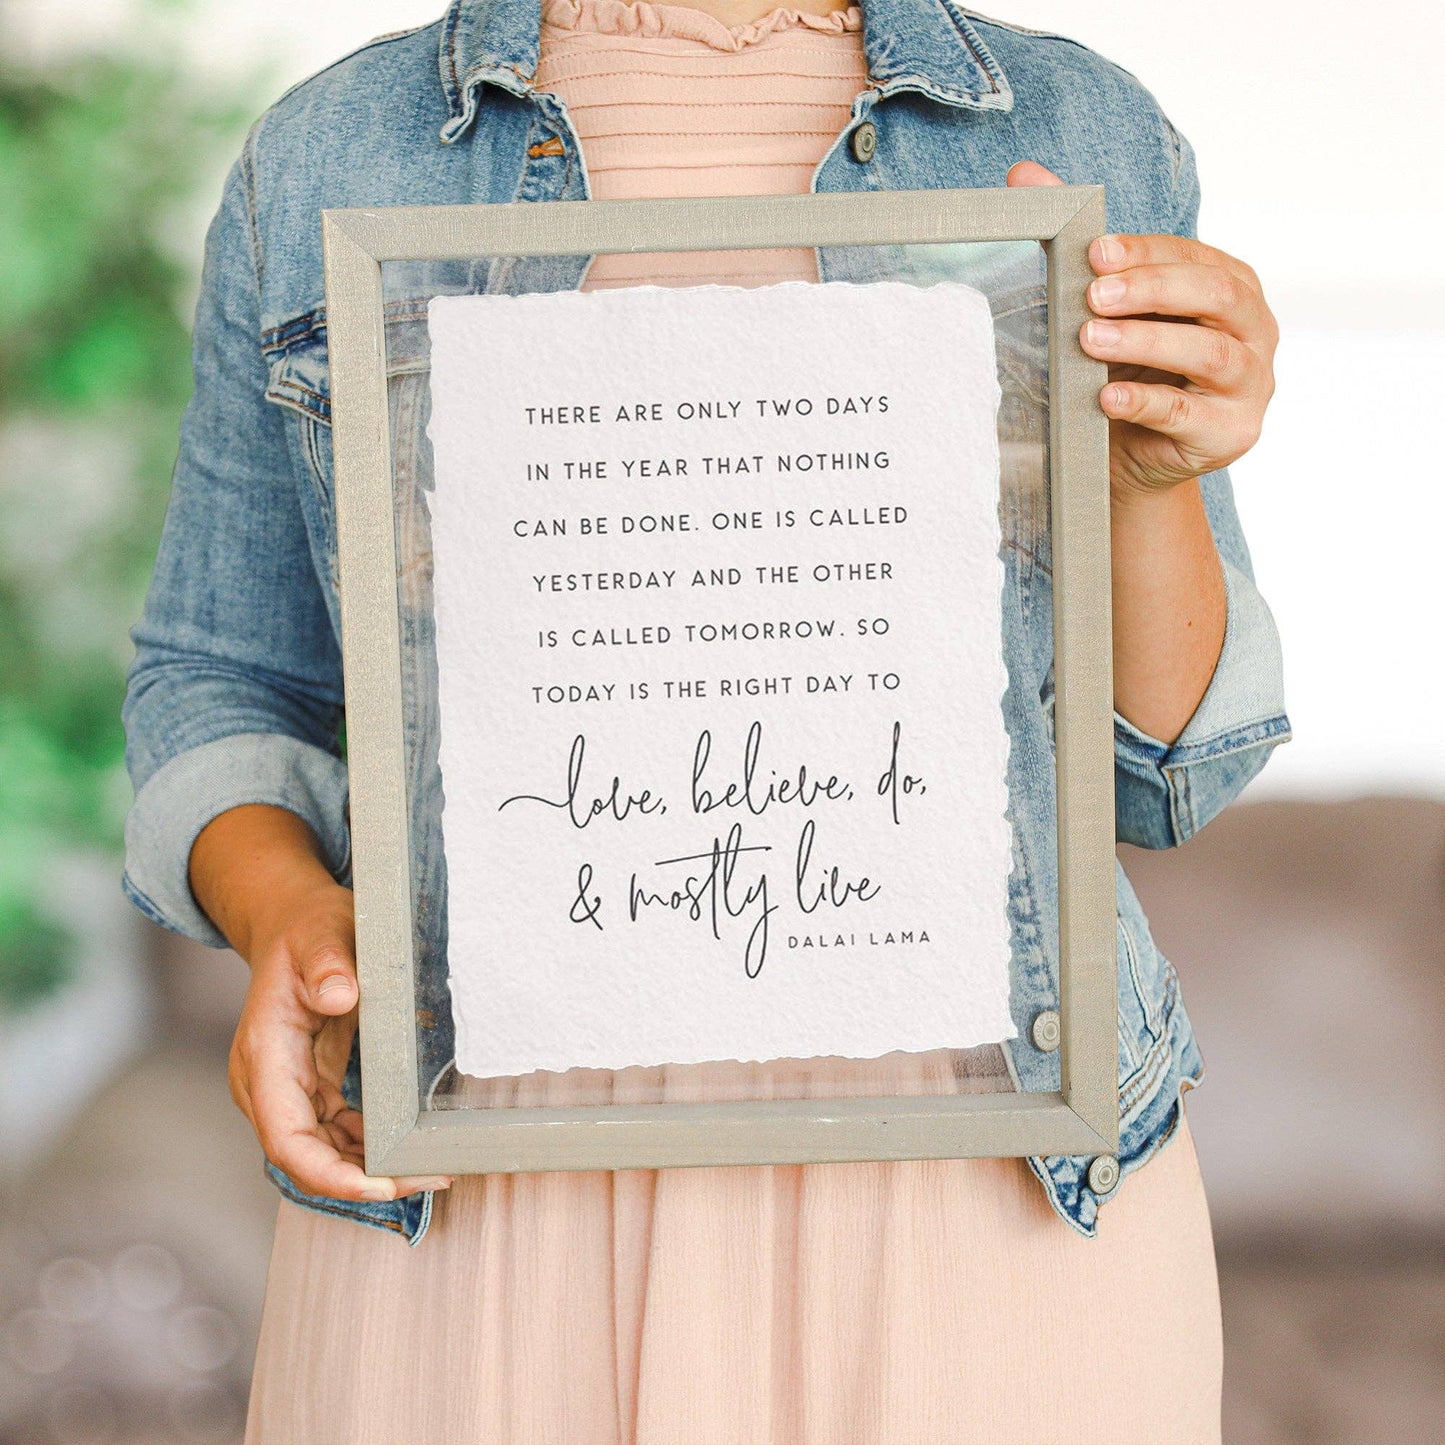 THERE ARE ONLY TWO DAYS
IN THE YEAR THAT NOTHING
CAN BE DONE. ONE IS CALLED
YESTERDAY AND THE OTHER
IS CALLED TOMORROW. SO
TODAY IS THE RIGHT DAY TO
love, believe, do,
& mostly live
DALAI LAMA